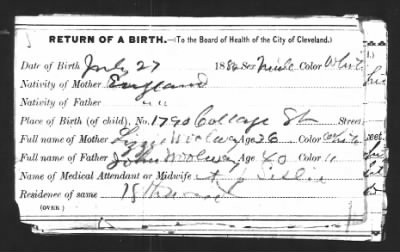 RETURN OF A BIRTH.—(To the Board of Health of the City of Cleveland.)
Date of Birth July 27 188 Sex Male Color White
Nativity of Mother England
Nativity of Father " "
Place of Birth (of child), No. 1790 College St Street
Full name of Mother Lizzie Woolway Age 26 Color White
Full name of Father John Woolway Age 40 Color "
Name of Medical Attendant or Midwife A Leslie
Residence of same
(OVER)